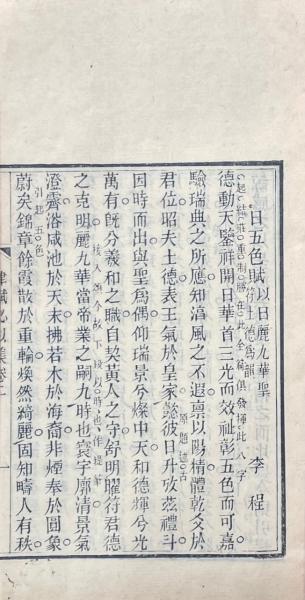 日五色賦 以日麗九華聖符土德為韻 李程
起結莊重制勝在此全稿俱發揮此八字
德動天鑒祥開日華首三光而效祉彰五色而可嘉
驗瑞典之所應知淳風之不遐禀以陽精體乾爻於
君位昭夫土德表王氣於皇家懿彼日升攷茲禮斗
因時而出與聖為偶仰瑞景兮燦中天和德輝兮光
萬有既分羲和之職自契黃人之守舒明曜符君德
之克明麗九華當帝業之嗣九時也寰宇廓清景氣
澄霽浴咸池於天末拂若木於海裔非煙奉於圓象
引起五色
蔚矣錦章餘霞散於重輪煥然綺麗固知疇人有秩